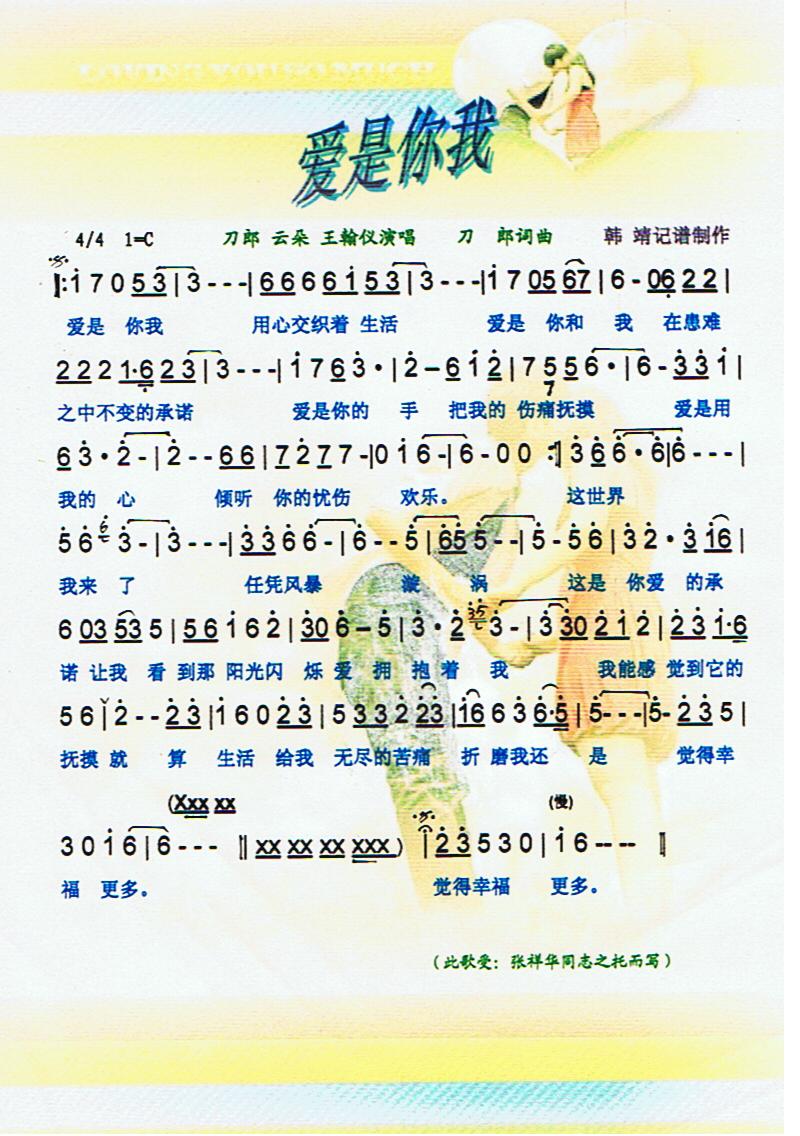 LOVING YOU SO MUCH
爱是你我
4/4 1=C 刀郎 云朵 王翰仪演唱 刀 郎词曲 韩 靖记谱制作
‖:i 7 0 5 3 | 3 - - -| 6 6 6 6 i 5 3 | 3 - - -|i 7 0 5 6 7 | 6 - 0 6 2 2 |
爱是 你我 用心交织着 生活 爱是 你和 我 在患难
2 2 2 1·6 2 3 | 3 - - -| i 7 6 3 · | 2 – 6 i 2 | 7 5 5 6 · | 6 - 3 3 i |
之中不变的承诺 爱是你的 手 把我的 伤痛抚摸 爱是用
6 3 · 2 - | 2 - - 6 6 | 7 2 7 7 -|0 i 6 -| 6 - 0 0 :‖ 3 6 6 · 6| 6 - - -|
我的 心 倾听 你的忧伤 欢乐。 这世界
5 6 3 - | 3 - - -| 3 3 6 6 - | 6 - - 5 | 6 5 5 - -| 5 - 5 6 | 3 2 · 3 i 6 |
我来 了 任凭风暴 漩 涡 这是 你爱 的承
6 0 3 5 3 5 | 5 6 i 6 2 | 3 0 6 – 5 | 3 · 2 3 - | 3 3 0 2 1 2 | 2 3 1·6
诺 让我 看 到那 阳光闪 烁 爱 拥 抱 着 我 我能感 觉到它的
5 6 i | 2 - - 2 3 | i 6 0 2 3 | 5 3 3 2 2 3 | i 6 6 3 6·5 | 5 - - -| 5 - 2 3 5 |
抚摸 就 算 生活 给我 无尽的苦痛 折 磨我还 是 觉得幸
(Xxx xx (慢)
3 0 i 6 | 6 - - - ‖ xx xx xx xxx ) | 2 3 5 3 0 | i 6 -- -- ‖
福 更多。 觉得幸福 更多。
（此歌受：张祥华同志之托而写）